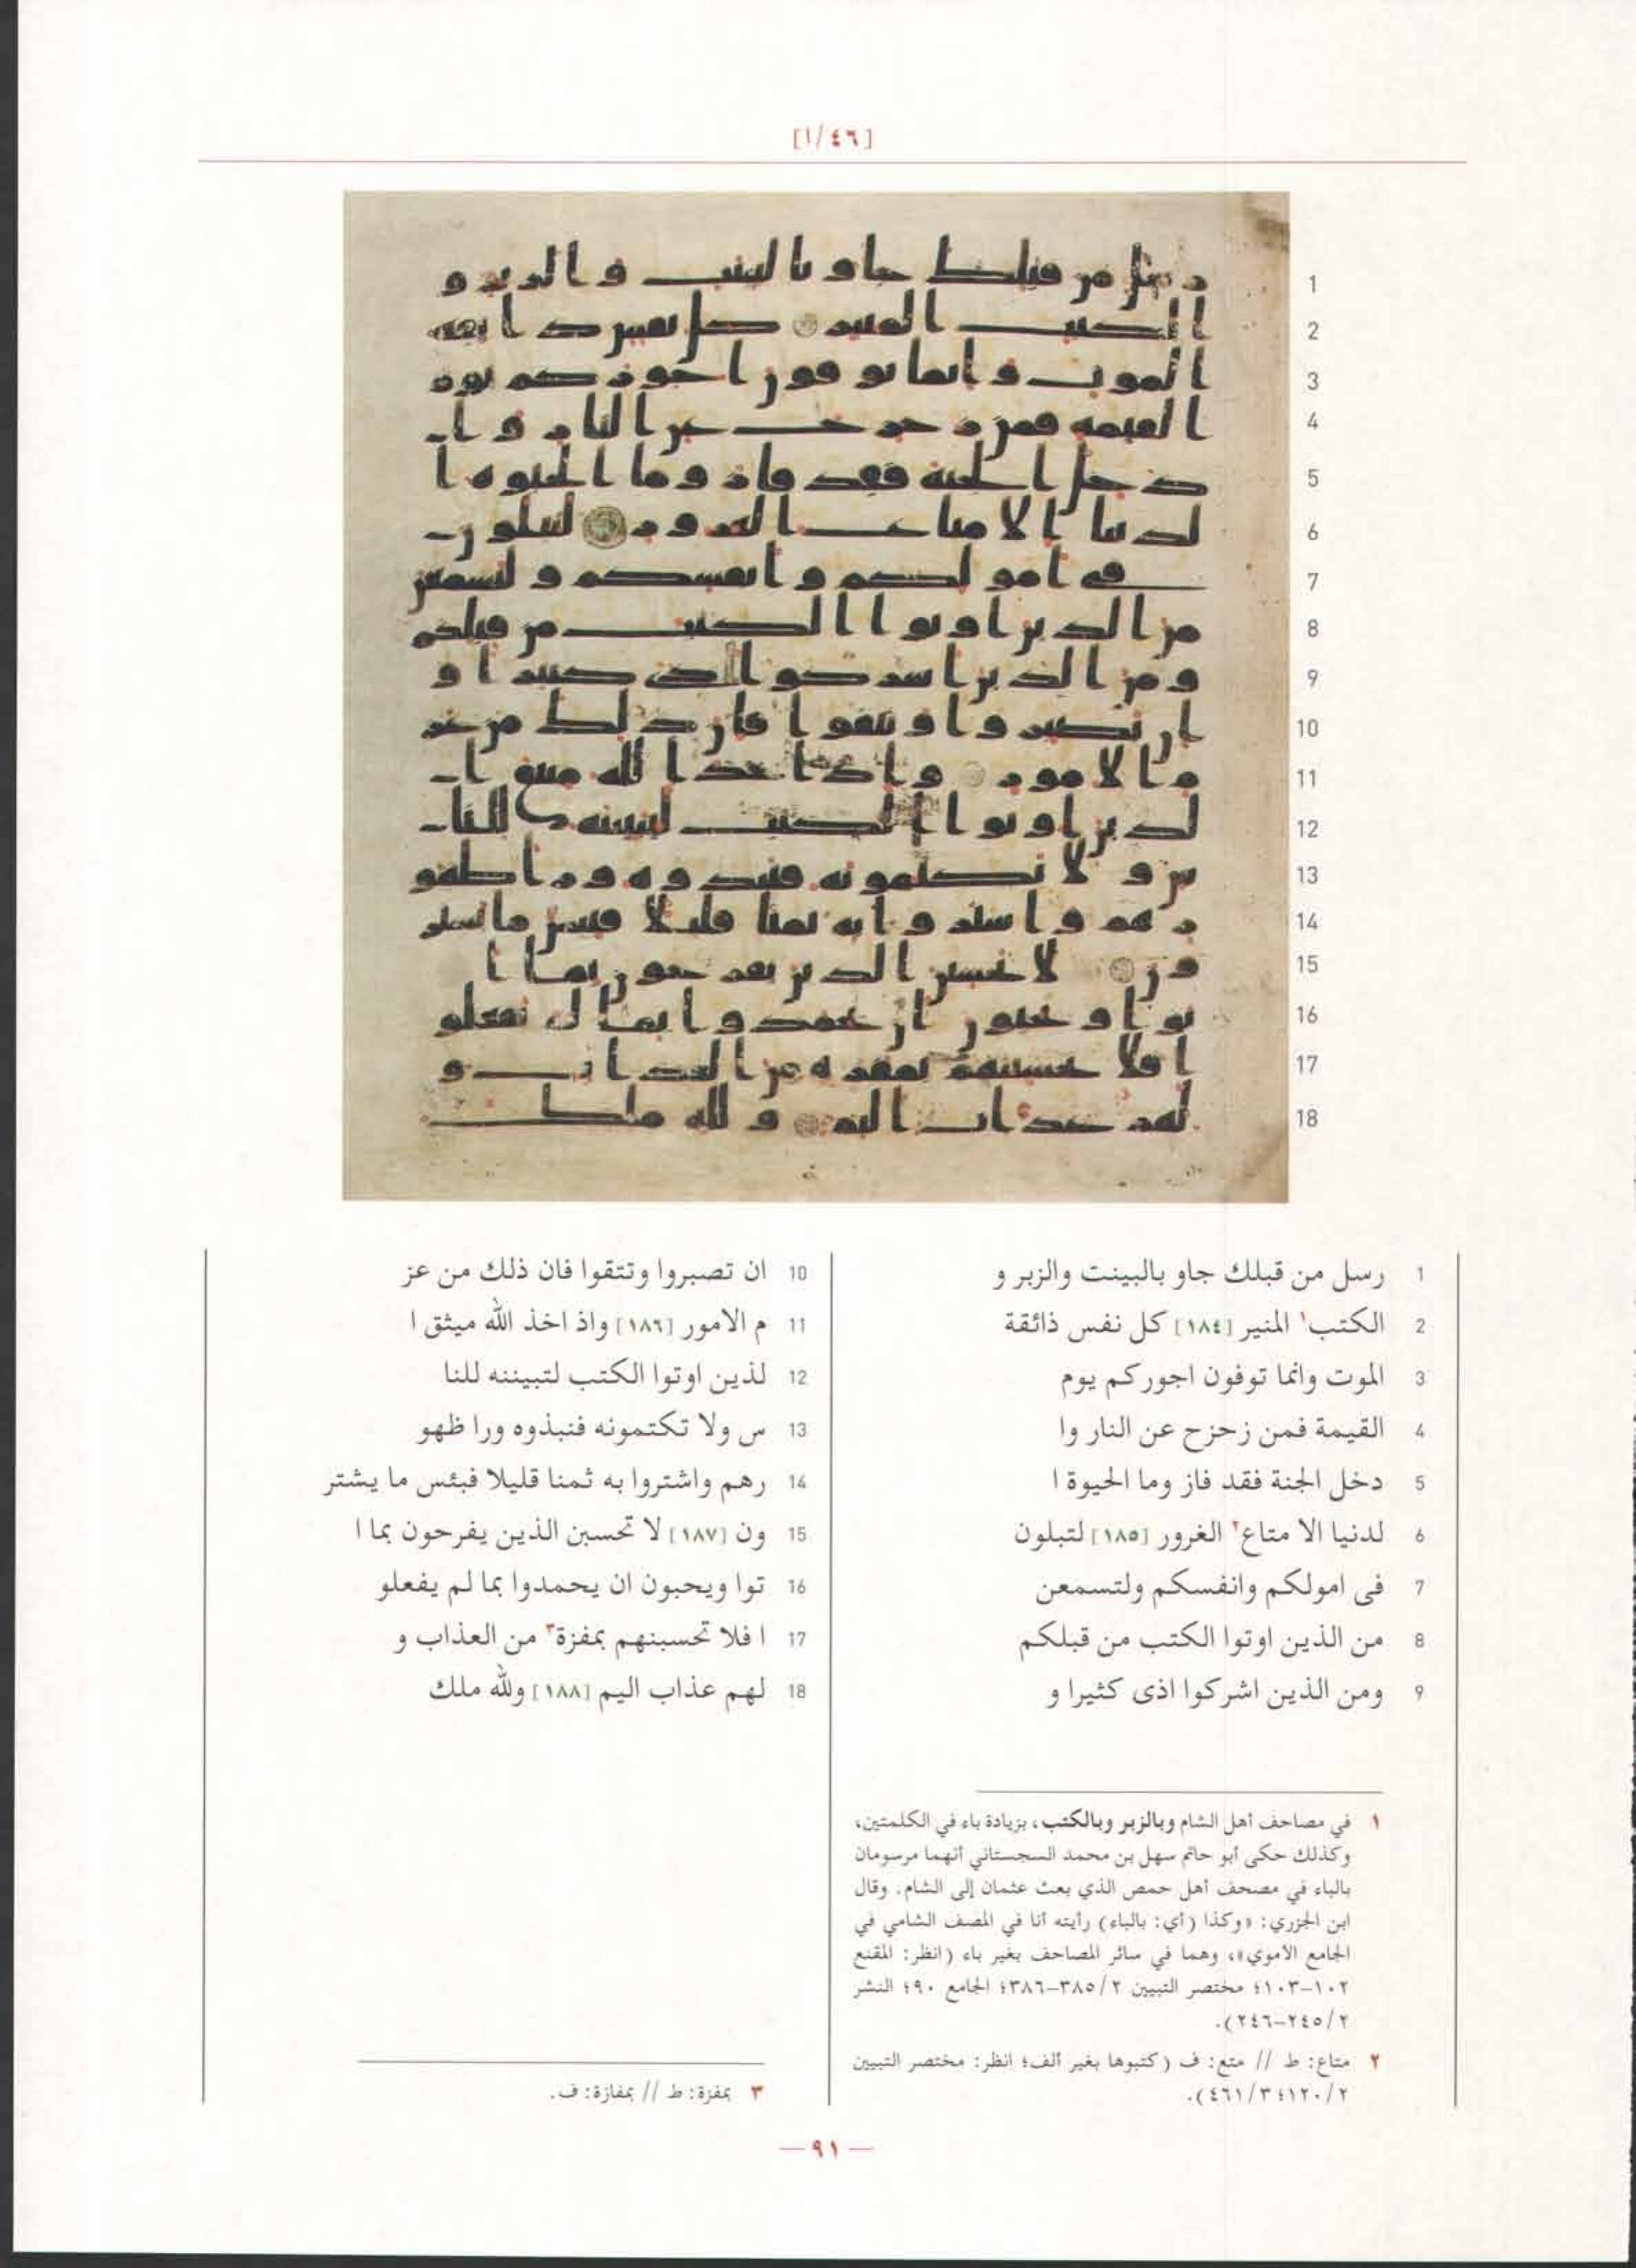 [١/٤٦]
1 رسل من قبلك جاو بالبينت والزبر و
2 الكتب١ المنير [١٨٤] كل نفس ذائقة
3 الموت وانما توفون اجوركم يوم
4 القيمة فمن زحزح عن النار وا
5 دخل الجنة فقد فاز وما الحيوة ا
6 لدنيا الا متاع٢ الغرور [١٨٥] لتبلون
7 فى امولكم وانفسكم ولتسمعن
8 من الذين اوتوا الكتب من قبلكم
9 ومن الذين اشركوا اذى كثيرا و
10 ان تصبروا وتتقوا فان ذلك من عز
11 م الامور [١٨٦] واذ اخذ الله ميثق ا
12 لذين اوتوا الكتب لتبيننه للنا
13 س ولا تكتمونه فنبذوه ورا ظهو
14 رهم واشتروا به ثمنا قليلا فبئس ما يشتر
15 ون [١٨٧] لا تحسبن الذين يفرحون بما ا
16 توا ويحبون ان يحمدوا بما لم يفعلو
17 ا فلا تحسبنهم بمفزة٣ من العذاب و
18 لهم عذاب اليم [١٨٨] ولله ملك
١ في مصاحف أهل الشام وبالزبر وبالكتب، بزيادة باء في الكلمتين،
وكذلك حكى أبو حاتم سهل بن محمد السجستاني أنهما مرسومان
بالباء في مصحف أهل حمص الذي بعث عثمان إلى الشام. وقال
ابن الجزري: «وكذا (أي: بالباء) رأيته أنا في المصف الشامي في
الجامع الأموي»، وهما في سائر المصاحف بغير باء (انظر: المقنع
١٠٢-١٠٣؛ مختصر التبيين ٣٨٥/٢-٣٨٦؛ الجامع ٩٠؛ النشر
٢٤٥/٢-٢٤٦).
٢ متاع: ط // متع: ف (كتبوها بغير ألف؛ انظر: مختصر التبيين
١٢٠/٢؛ ٤٦١/٣).
٣ بمفزة: ط // بمفازة: ف.
— ٩١ —